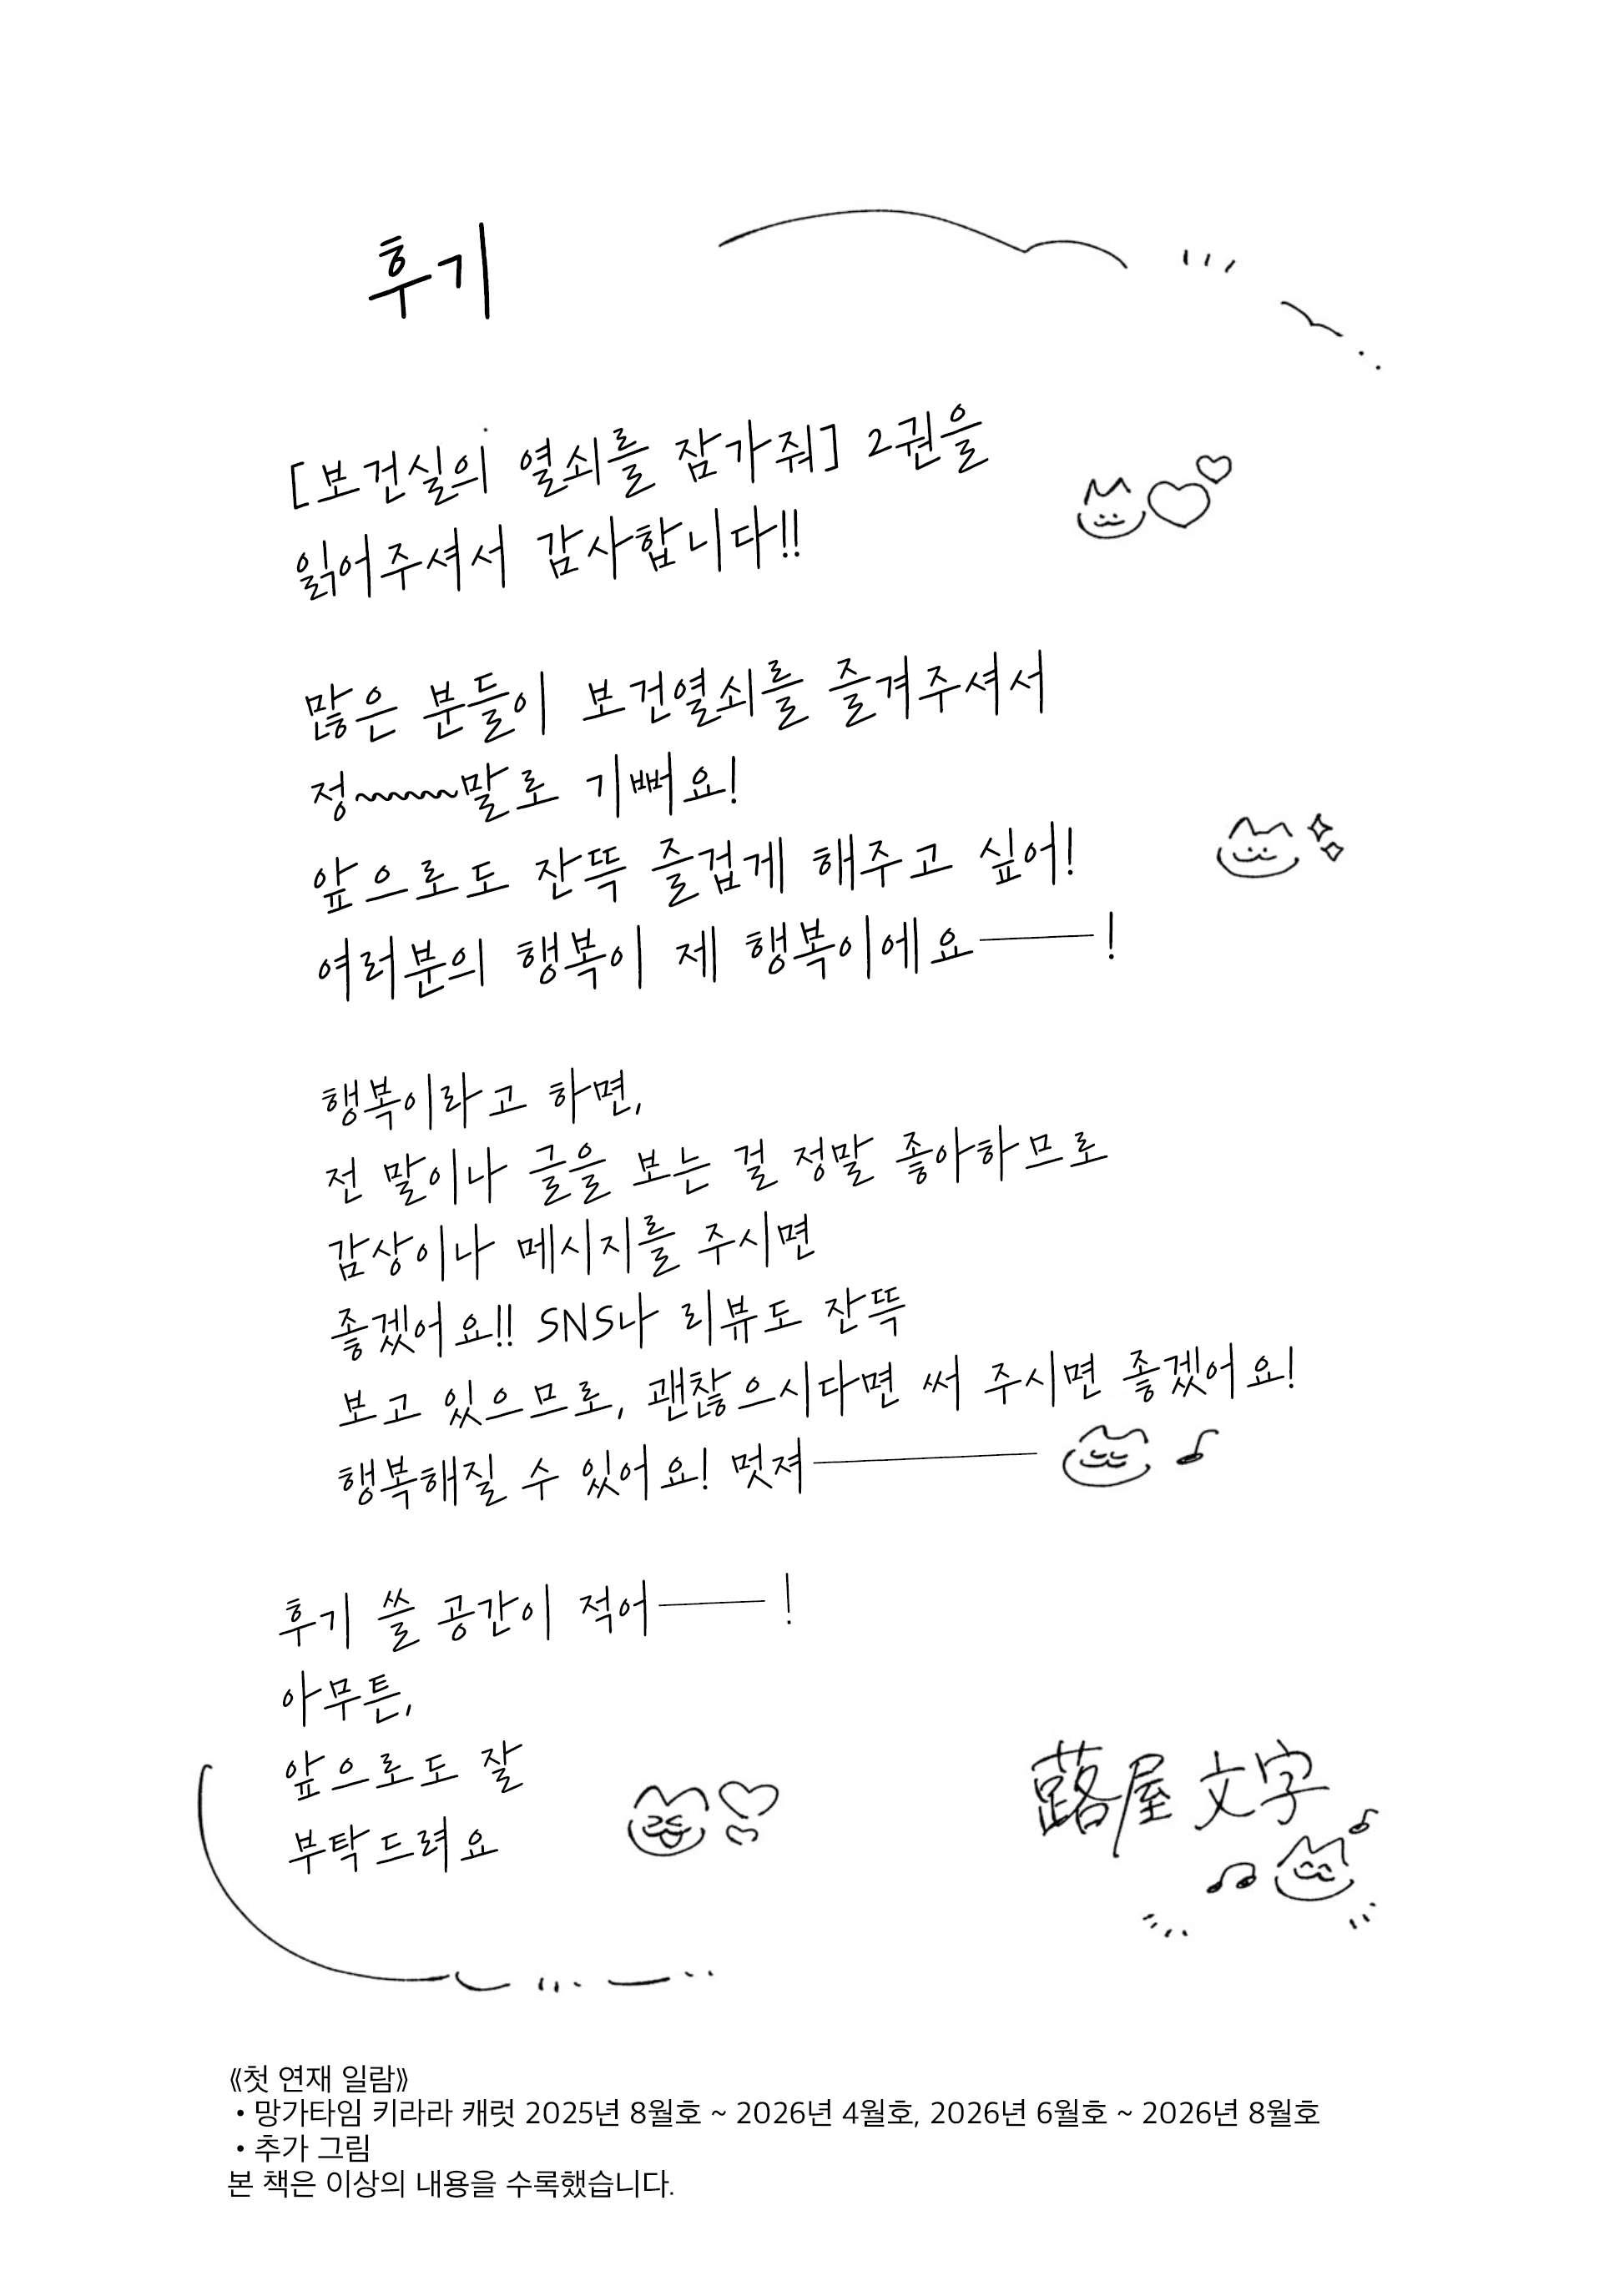 후기
[보건실의 열쇠를 잠가줘] 2권을
읽어주셔서 감사합니다!!
많은 분들이 보건열쇠를 즐겨주셔서
정~~~~말로 기뻐요!
앞으로도 잔뜩 즐겁게 해주고 싶어!
여러분의 행복이 제 행복이에요───!
행복이라고 하면,
전 말이나 글을 보는 걸 정말 좋아하므로
감상이나 메시지를 주시면
좋겠어요!! SNS나 리뷰도 잔뜩
보고 있으므로, 괜찮으시다면 써 주시면 좋겠어요!
행복해질 수 있어요! 멋져──────
후기 쓸 공간이 적어───!
아무튼,
앞으로도 잘
부탁드려요
蕗屋 文字
《첫 연재 일람》
• 망가타임 키라라 캐럿 2025년 8월호 ~ 2026년 4월호, 2026년 6월호 ~ 2026년 8월호
• 추가 그림
본 책은 이상의 내용을 수록했습니다.